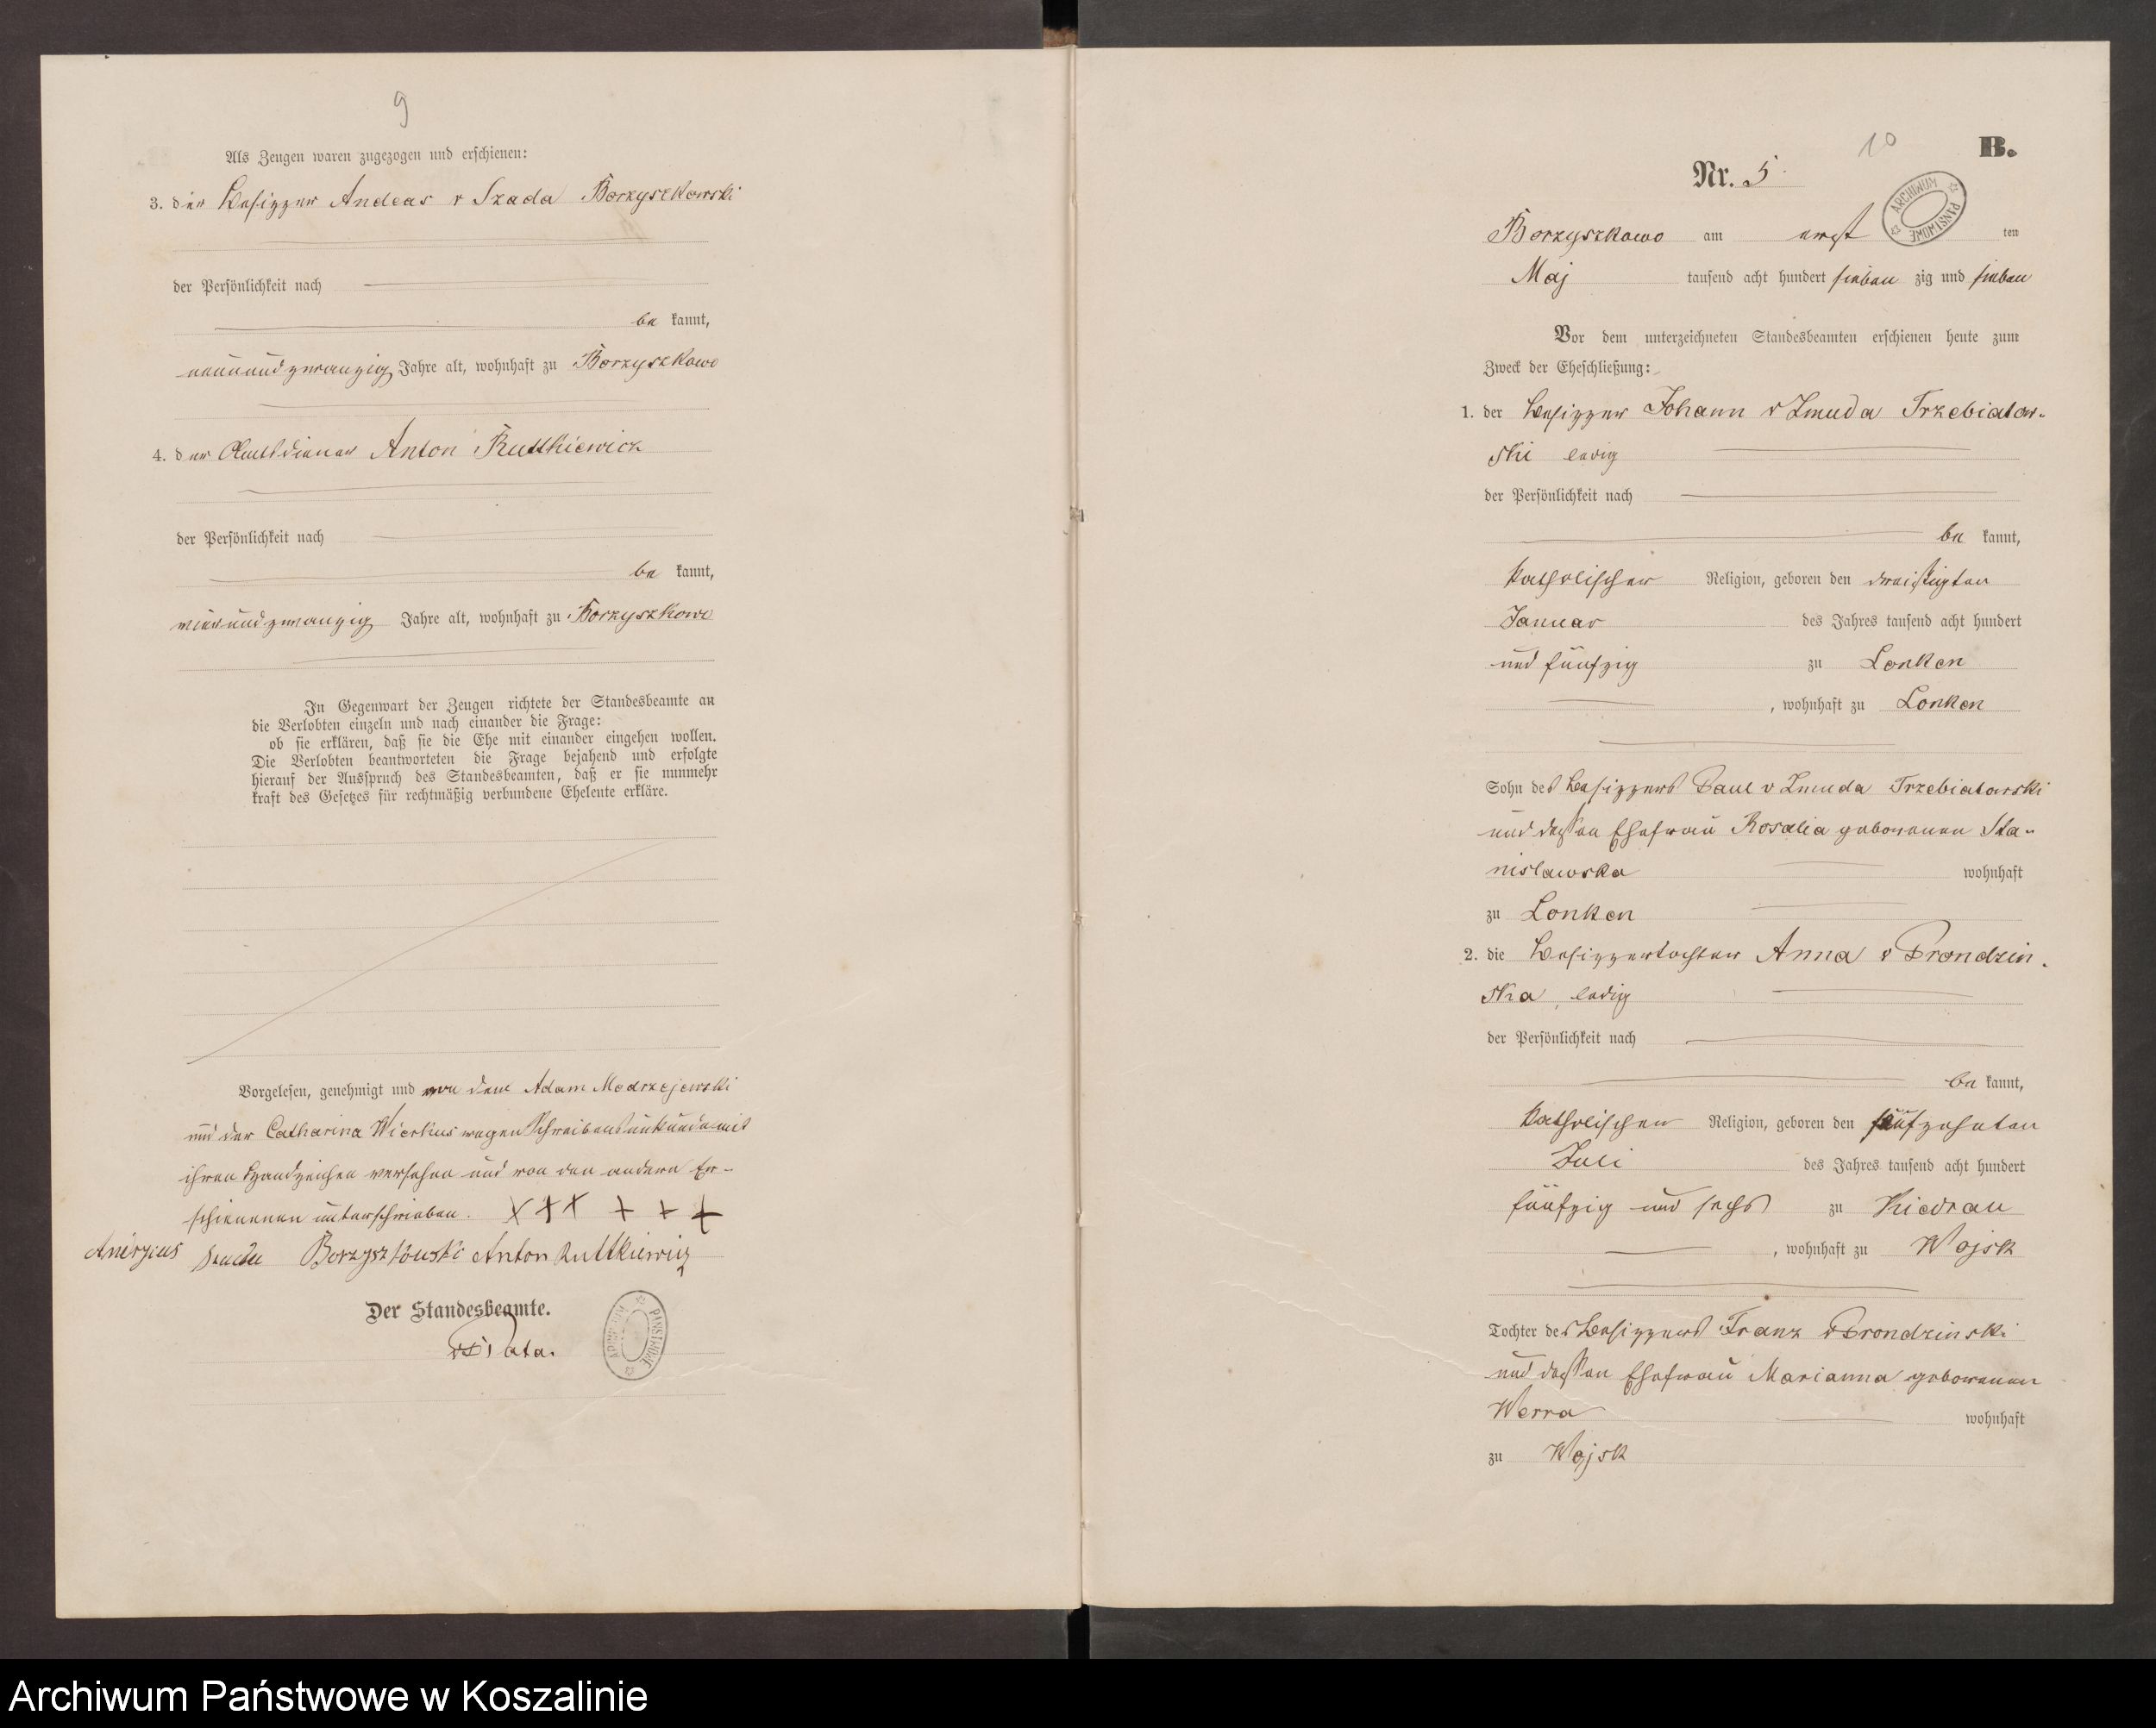 9
Als Zeugen waren zugezogen und erschienen:
3. der Besitzer Andeas v Szada Borzyszkowski
der Persönlichkeit nach
be kannt,
neunundzwanzig Jahre alt, wohnhaft zu Borzyszkowo
4. der Amtsdiener Anton Ruttkiewicz
der Persönlichkeit nach
be kannt,
vierundzwanzig Jahre alt, wohnhaft zu Borzyszkowo
In Gegenwart der Zeugen richtete der Standesbeamte an
die Verlobten einzeln und nach einander die Frage:
ob sie erklären, daß sie die Ehe mit einander eingehen wollen.
Die Verlobten beantworteten die Frage bejahend und erfolgte
hierauf der Ausspruch des Standesbeamten, daß er sie nunmehr
kraft des Gesetzes für rechtmäßig verbundene Eheleute erkläre.
Vorgelesen, genehmigt und von dem Adam Modrzejewski
und der Catharina Wierkus wegen Schreibensunkunde mit
ihren Handzeichen versehen und von den andern Er-
schienenen unterschrieben. XXX + + +
Borzyszkowski Anton Ruttkiewicz
Der Standesbeamte.
ARCHIWUM PAŃSTWOWE
10
B.
Nr. 5
ARCHIWUM PAŃSTWOWE
Borzyszkowo am erst ten
Maj tausend acht hundert sieben zig und sieben
Vor dem unterzeichneten Standesbeamten erschienen heute zum
Zweck der Eheschließung:
1. der Besitzer Johann v Zmuda Trzebiatow-
ski ledig
der Persönlichkeit nach
be kannt,
katholischer Religion, geboren den dreißigten
Januar des Jahres tausend acht hundert
und fünfzig zu Lonken
, wohnhaft zu Lonken
Sohn des Besitzers Paul v Zmuda Trzebiatowski
und dessen Ehefrau Rosalia geborenen Sta-
nislawska wohnhaft
zu Lonken
2. die Besitzertochter Anna v Prondzin-
ska, ledig
der Persönlichkeit nach
be kannt,
katholischen Religion, geboren den fünfzehnten
Juli des Jahres tausend acht hundert
fünfzig und sechs zu Kiedrau
, wohnhaft zu Wojsk
Tochter des Besitzers Franz v Prondzinski
und dessen Ehefrau Marianna geborenen
Werra wohnhaft
zu Wojsk
Archiwum Państwowe w Koszalinie